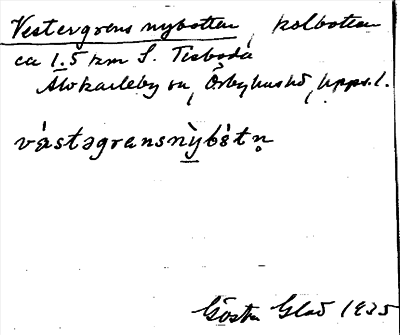 Vestergrens nybotten, kolbotten
ca 1.5 km S. Tisboda
Älvkarleby sn, Örbyhus hd, Upps. l.
västəgransnỳbåtn̥
Gösta Glad 1935